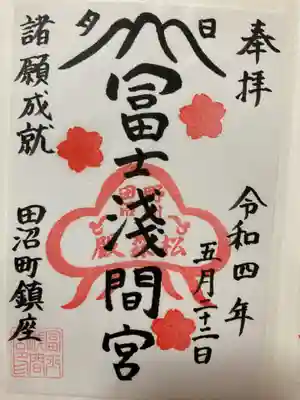 奉拝
令和四年
五月二十二日
日
夕
冨士淺間宮
諸願成就
田沼町鎮座